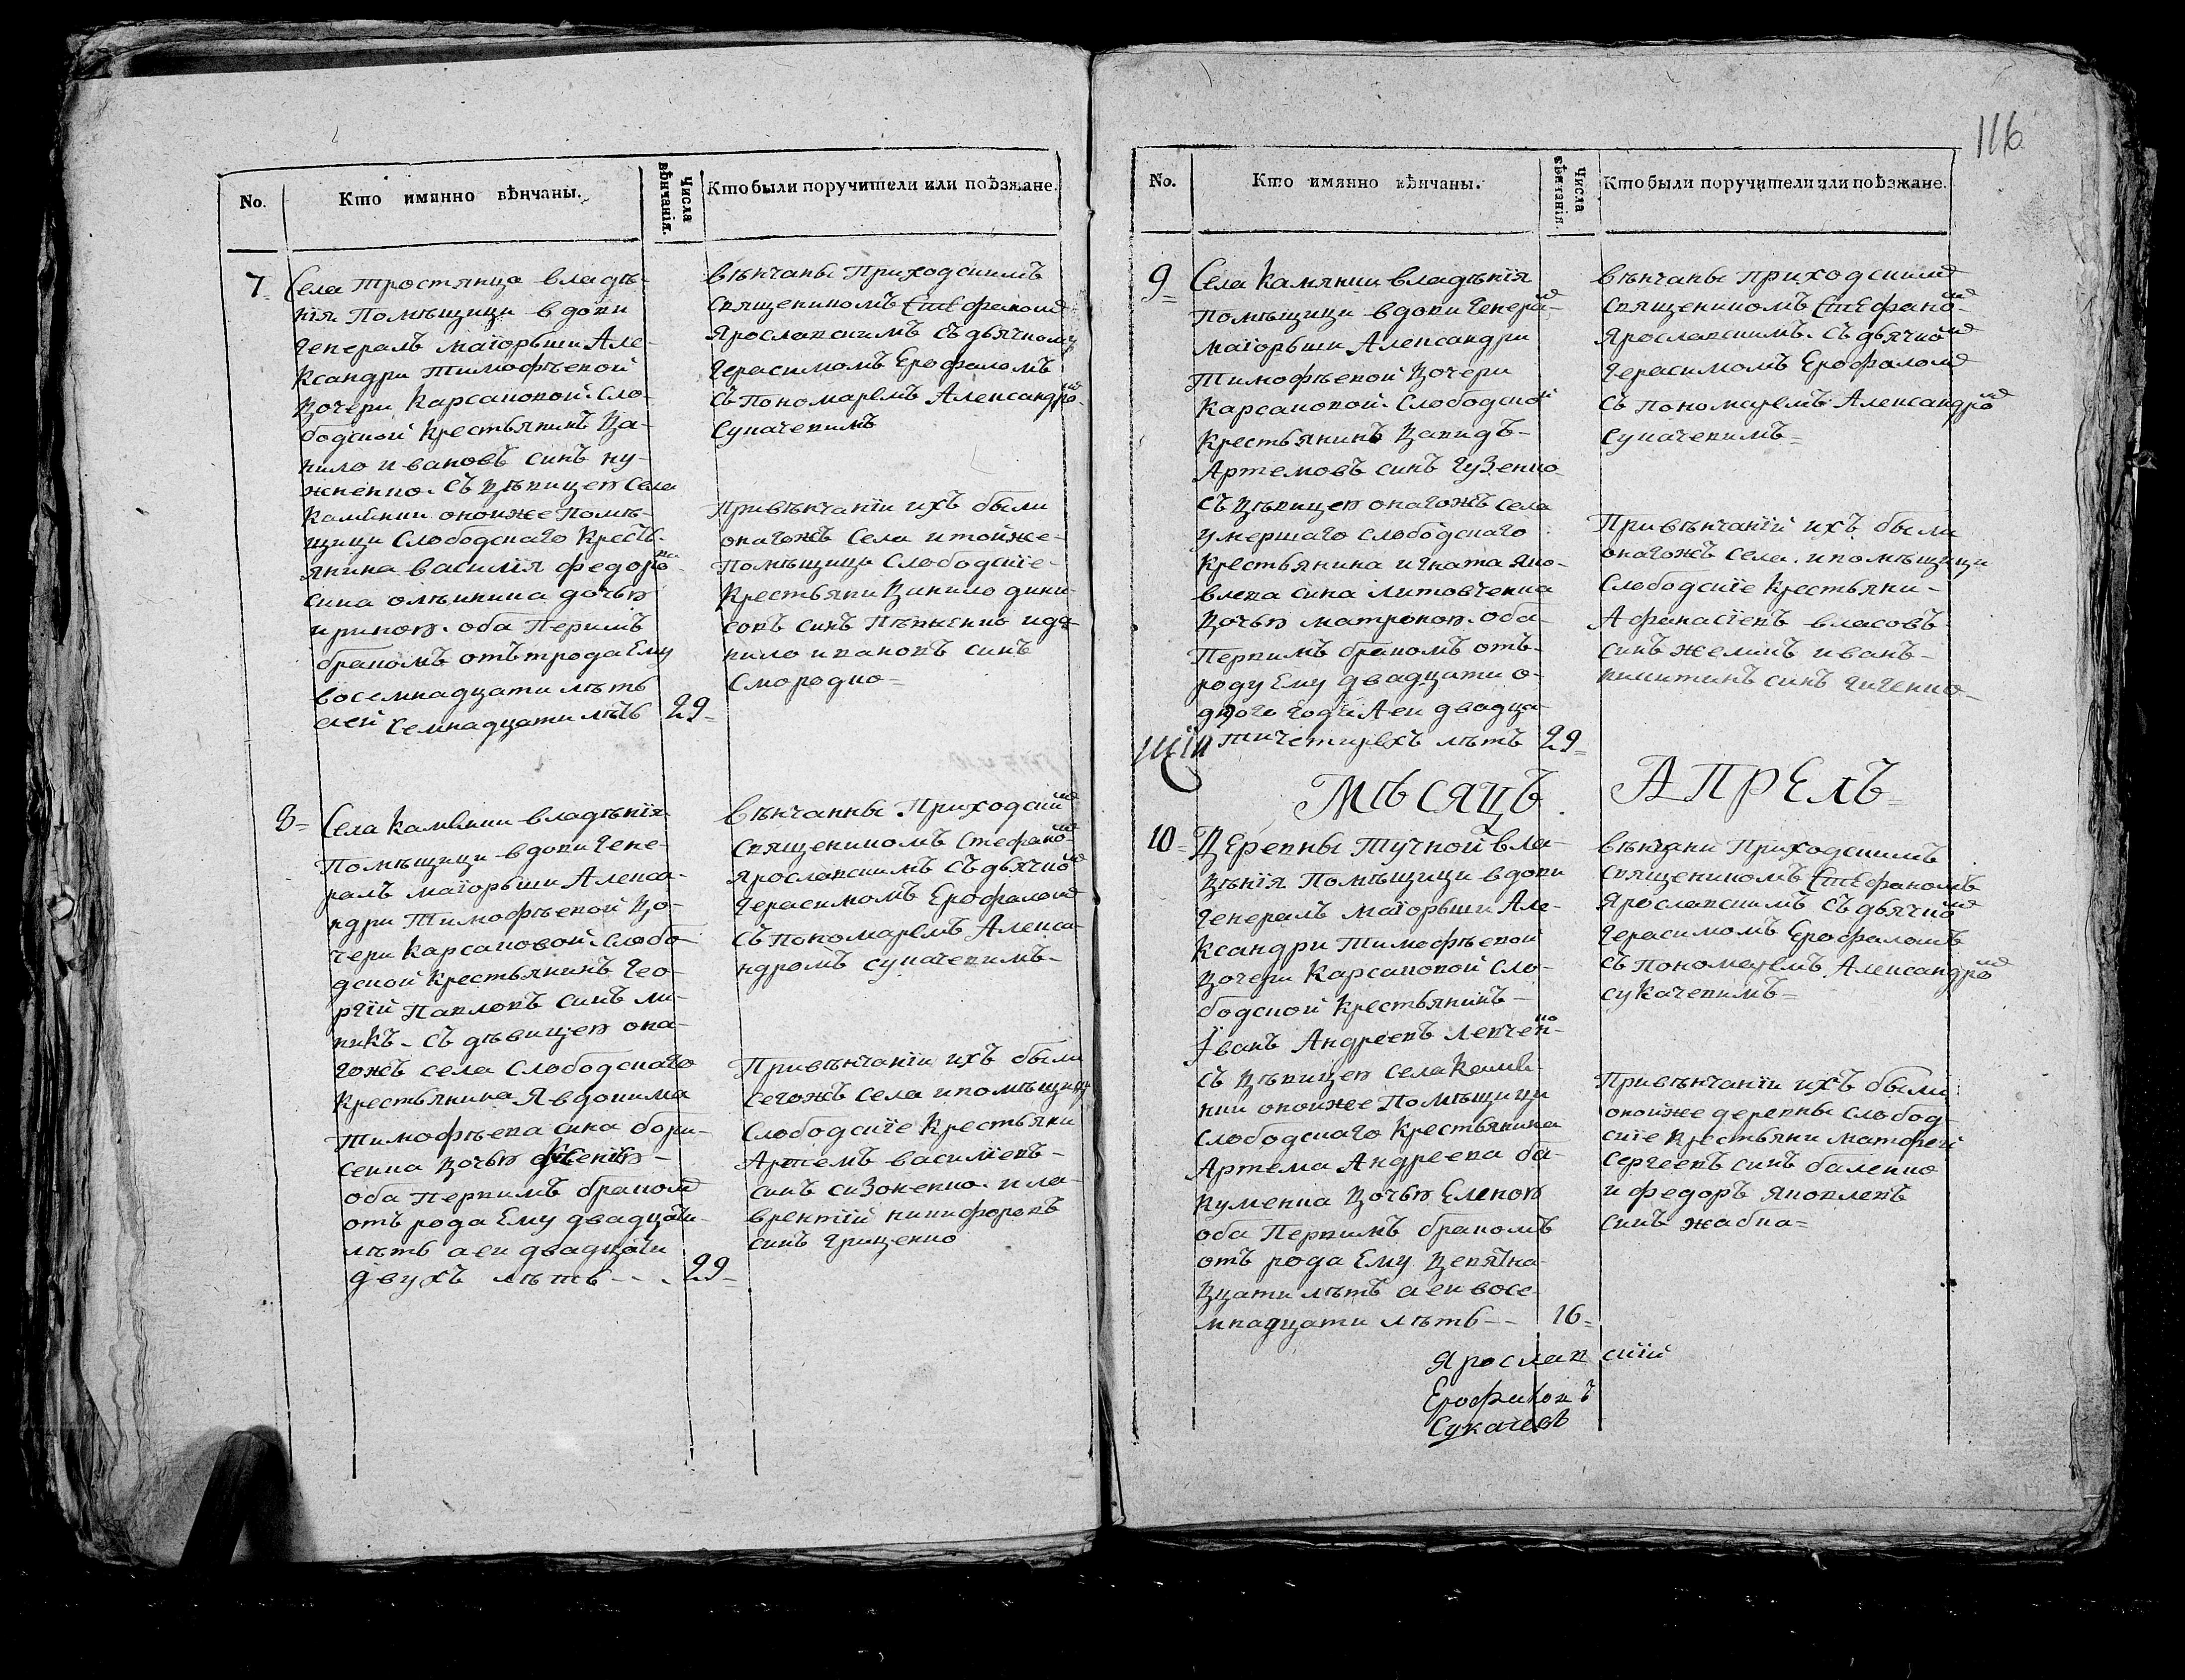 116
No.
Кто имянно вѣнчаны.
Числа вѣнчанія.
Кто были поручители или поѣзжане.
7
Села тростянца владѣ-
нія Помѣщици вдови
генералъ маіорьши Але-
ксандри Тимофѣевой
Дочери Карсаковой. Сло-
бодской крестьянинъ Да-
нило ивановъ синъ ну-
жненко. съ Дѣвицею села
камянки оной же Помѣ-
щици слободскаго Крестъ-
янина василія федоро
сина дочью
ириною. оба Первимъ
бракомъ отътрода Ему
восемнадцати лѣтъ
аей семнадцати лѣтъ
29
вѣнчаны Приходскимъ
священикомъ Стефаномъ
Ярославскимъ съ дьячкомъ
Герасимомъ Ерофаломъ
съ Пономаремъ Александро
Сукачевимъ
Привѣнчаніи ихъ были
онагожъ Села и тойже
Помѣщицы Слободскіе
Крестьяни Данило дини
совъ синъ и да-
нило ивановъ синъ
Смородко
8
Села камянки владѣнія
Помѣщици вдови Гене-
ралъ маіорьши Алекса-
ндри Тимофѣевой До-
чери Карсаковой. Слобо-
дской крестьянинъ Гео-
ргій Павловъ синъ ли-
никъ - съ дѣвицею она-
гожъ села слободскаго
Крестьянина Явдокима
Тимофѣева сина бори-
сенка Дочью
оба Первимъ бракомъ
отъ рода Ему двадцати
лѣтъ аеи двадцати
двухъ лѣтъ
29
вѣнчанны Приходски
священикомъ Стефано
Ярославскимъ съ дьячко
Герасимомъ Ерофаломъ
съ Пономаремъ Алекса-
ндромъ сукачевимъ
Привѣнчаніи ихъ были
Сегожъ села ипомѣщици
Слободскіе Крестьяни
Артемъ василіевъ
синъ сизоненко. и ла-
врентій никифоровъ
синъ Грищенко
No.
Кто имянно вѣнчаны.
Числа вѣнчанія.
Кто были поручители или поѣзжане.
9
Села Камянки владѣнія
Помѣщици вдови Генера
маіорьши Александри
Тимофѣевой Дочери
Карсаковой. Слободской
крестьянинъ Давидъ
Артемовъ синъ Гузенко
съ Дѣвицею онагожъ села
умершаго слободскаго
Крестьянина игната яко-
влева сина литовченка
Дочью матроною. оба
Первимъ бракомъ отъ
роду Ему двадцати о-
дного годи Аеи двадца-
ти четирехъ лѣтъ
29
вѣнчаны приходским
священикомъ Стефано
Ярославскимъ. Съ дьячко
Герасимомъ Ерофаломъ
съ пономаремъ Александро
Сукачевимъ
Привѣнчаній ихъ были
онагожъ села. ипомѣщици
Слободскіе крестьяни
Афанасіевъ власовъ
синъ желикъ иванъ
никитинъ синъ
МѢСЯЦЪ АПРЕЛЪ
10
ДЕревны Тучной вла-
Дѣнія Помѣщици вдови
Генералъ Маіорьши Але-
ксандри Тимофѣевой
Дочери Карсаковой сло-
бодской крестьянинъ
Іванъ Андреевъ левчен-
ко
съ Дѣвицею села камя-
нки онойже Помѣщици
слободскаго крестьянина
Артема Андреева ба-
куменка Дочью Еленою
оба Первимъ бракомъ
отъ рода Ему Девятна-
Дцати лѣтъ аеи восе
мнадцати лѣтъ
16
вѣнчани Приходскимъ
священикомъ Стефаномъ
Ярославскимъ съ дьячко
Герасимомъ Ерофаломъ
съ Пономаремъ Александро
сукачевимъ
Привѣнчаніи ихъ были
онойже деревны слобод
скіе крестьяни матфей
Сергеевъ синъ баленко
и федоръ яковлевъ
синъ жабка
Ярославскій
Ерофаловъ
Сукачевъ